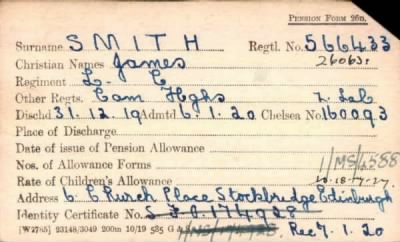 PENSION FORM 26D.
Surname SMITH Regtl. No. 566433
Christian Names James 26063
Regiment L. C
Other Regts. Cam Hghs L. Lab
Dischd 31.12.19 Admtd 6.1.20 Chelsea No 160093
Place of Discharge
Date of issue of Pension Allowance
Nos. of Allowance Forms 1/MS/4588
Rate of Children's Allowance
Address 6. Church Place Stockbridge Edinburgh
Identity Certificate No. 
[W2785] 23148/3049 200m 10/19 535 G & S Rec 7.1.20